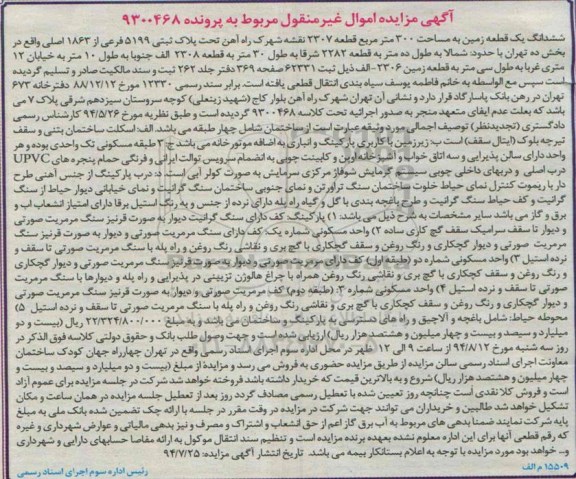 آگهی مزایده اموال غیرمنقول مربوط به پرونده ۹۳۰۰۴۶۸
ششدانگ یک قطعه زمین به مساحت ۳۰۰ متر مربع قطعه ۲۳۰۷ نقشه شهرک راه آهن تحت پلاک ثبتی ۵۱۹۹ فرعی از ۱۸۶۳ اصلی واقع در
بخش ده تهران با حدود: شمالا به طول ده متر به قطعه ۲۲۸۲ شرقا به طول ۳۰ متر به قطعه ۲۳۰۸ الف جنوبا به طول ۱۰ متر به خیابان ۱۲
متری غربا به طول سی متر به قطعه زمین ۲۳۰۶-الف ذیل ثبت ۶۲۳۳۱ صفحه ۳۶۹ دفتر جلد ۲۶۲ ثبت و سند مالکیت صادر و تسلیم گردیده
است سپس مع الواسطه به خانم فاطمه یوسف سیاه بندی انتقال قطعی یافته است. برابر سند رسمی ۱۲۳۳۰ مورخ ۸۸/۱۲/۱۲ دفترخانه ۶۷۳
تهران در رهن بانک پاسارگاد قرار دارد و نشانی آن تهران شهرک راه آهن بلوار کاج (شهید زینعلی) کوچه سروستان سیزدهم شرقی پلاک ۷ می
باشد که بعلت عدم ایفای متعهد منجر به صدور اجرائیه تحت کلاسه ۹۳۰۰۴۶۸ گردیده است و طبق نظریه مورخ ۹۴/۵/۲۶ کارشناس رسمی
دادگستری (تجدیدنظر) توصیف اجمالی مورد مزایده عبارت است از ساختمان شامل چهار طبقه می باشد. الف: اسکلت ساختمان بتنی و سقف
تیرچه بلوک (ایتال سقف) است ب: زیرزمین با کاربری پارکینگ و انباری به اضافه موتورخانه می باشد ج: ۳ طبقه مسکونی تک واحدی بوده و هر
واحد دارای سالن پذیرایی و سه اتاق خواب و آشپزخانه اوپن و کابینت چوبی به انضمام سرویس توالت ایرانی و فرنگی حمام پنجره های UPVC
درب اصلی و دربهای داخلی چوبی سیستم گرمایش شوفاژ مرکزی سرمایش به صورت کولر آبی است. د: درب پارکینگ از جنس آهنی طرح
دار با ریموت کنترل نمای حیاط خلوت ساختمان سنگ تراورتن و نمای جنوبی ساختمان سنگ گرانیت و نمای خیابانی دیوار حیاط از سنگ
گرانیت و کف حیاط سنگ گرانیت و طرح باغچه بندی با گل و گیاه راه پله دارای نرده از جنس و به رنگ استیل برقا دارای امتیاز انشعاب آب و
برق و گاز می باشد سایر مشخصات به شرح ذیل می باشد: ۱) پارکینگ کف دارای سنگ گرانیت دیوار به صورت قرنیز سنگ مرمریت صورتی
و دیوار تا سقف سرامیک سقف گچ کاری ساده ۲) واحد مسکونی شماره یک: کف دارای سنگ مرمریت صورتی و دیوار به صورت قرنیز سنگ
مرمریت صورتی و دیوار گچکاری و رنگ روغن و سقف گچکاری با گچ بری و نقاشی رنگ روغن و راه پله با سنگ مرمریت صورتی تا سقف و
نرده استیل ۳) واحد مسکونی شماره دو (طبقه اول) کف دارای مرمریت صورتی و دیوار به صورت قرنیز سنگ مرمریت صورتی و دیوار گچکاری
و رنگ روغن و سقف گچکاری با گچ بری و نقاشی رنگ روغن همراه با چراغ هالوژن تزیینی در پذیرایی و راه پله و دیوارها با سنگ مرمریت
صورتی تا سقف و نرده استیل ۴) واحد مسکونی شماره ۳: (طبقه دوم) کف مرمریت صورتی و دیوار به صورت قرنیز سنگ مرمریت صورتی
و دیوار گچکاری و رنگ روغن و سقف گچکاری با گچ بری و نقاشی رنگ روغن و راه پله با سنگ مرمریت صورتی تا سقف و نرده استیل ۵)
محوطه حیاط: شامل باغچه و آلاچیق و راه های دسترسی به پارکینگ و ساختمان می باشد و به مبلغ ۲۲/۳۲۴/۸۰۰/۰۰۰ ریال (بیست و دو
میلیارد و سیصد و بیست و چهار میلیون و هشتصد هزار ریال) ارزیابی شده است و جهت وصول طلب بانک و حقوق دولتی کلاسه فوق الذکر در
روز سه شنبه مورخ ۹۴/۸/۱۲ از ساعت ۹ الی ۱۲ ظهر در محل اداره سوم اجرای اسناد رسمی واقع در تهران چهارراه جهان کودک ساختمان
معاونت اجرای اسناد رسمی سالن مزایده از طریق مزایده حضوری به فروش می رسد و مزایده از مبلغ (بیست و دو میلیارد و سیصد و بیست و
چهار میلیون و هشتصد هزار ریال) شروع و به بالاترین قیمت که خریدار داشته باشد فروخته خواهد شد شرکت در جلسه مزایده برای عموم آزاد
است و فروش کلا نقدی است چنانچه روز تعیین شده با تعطیل رسمی مصادف گردد روز بعد از تعطیل جلسه مزایده در همان ساعت و مکان
تشکیل خواهد شد طالبین و خریداران می توانند جهت شرکت در مزایده در وقت مقرر در جلسه با ارائه چک تضمین شده بانک ملی به مبلغ
پایه شرکت نمایند ضمنا بدهی های مربوط به آب برق گاز اعم از حق انشعاب و اشتراک و مصرف و نیز بدهی مالیاتی و عوارض شهرداری و غیره
که رقم قطعی آنها برای این اداره معلوم نشده بعهده برنده مزایده است و تنظیم سند انتقال موکول به ارائه مفاصا حسابهای دارایی و شهرداری
و... خواهد بود مورد مزایده با توجه به اعلام بستانکار بیمه می باشد. تاریخ انتشار آگهی مزایده: ۹۴/۷/۲۵
۱۵۵۰۹ م الف
رئیس اداره سوم اجرای اسناد رسمی